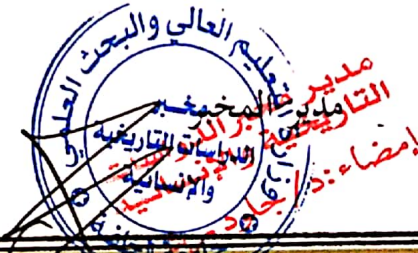 وزارة التعليم العالي والبحث العلمي
مخبر
الدراسات التاريخية
والإنسانية
مدير المخبر
مدير مخبر الدراسات
التاريخية والإنسانية
إمضاء: د/